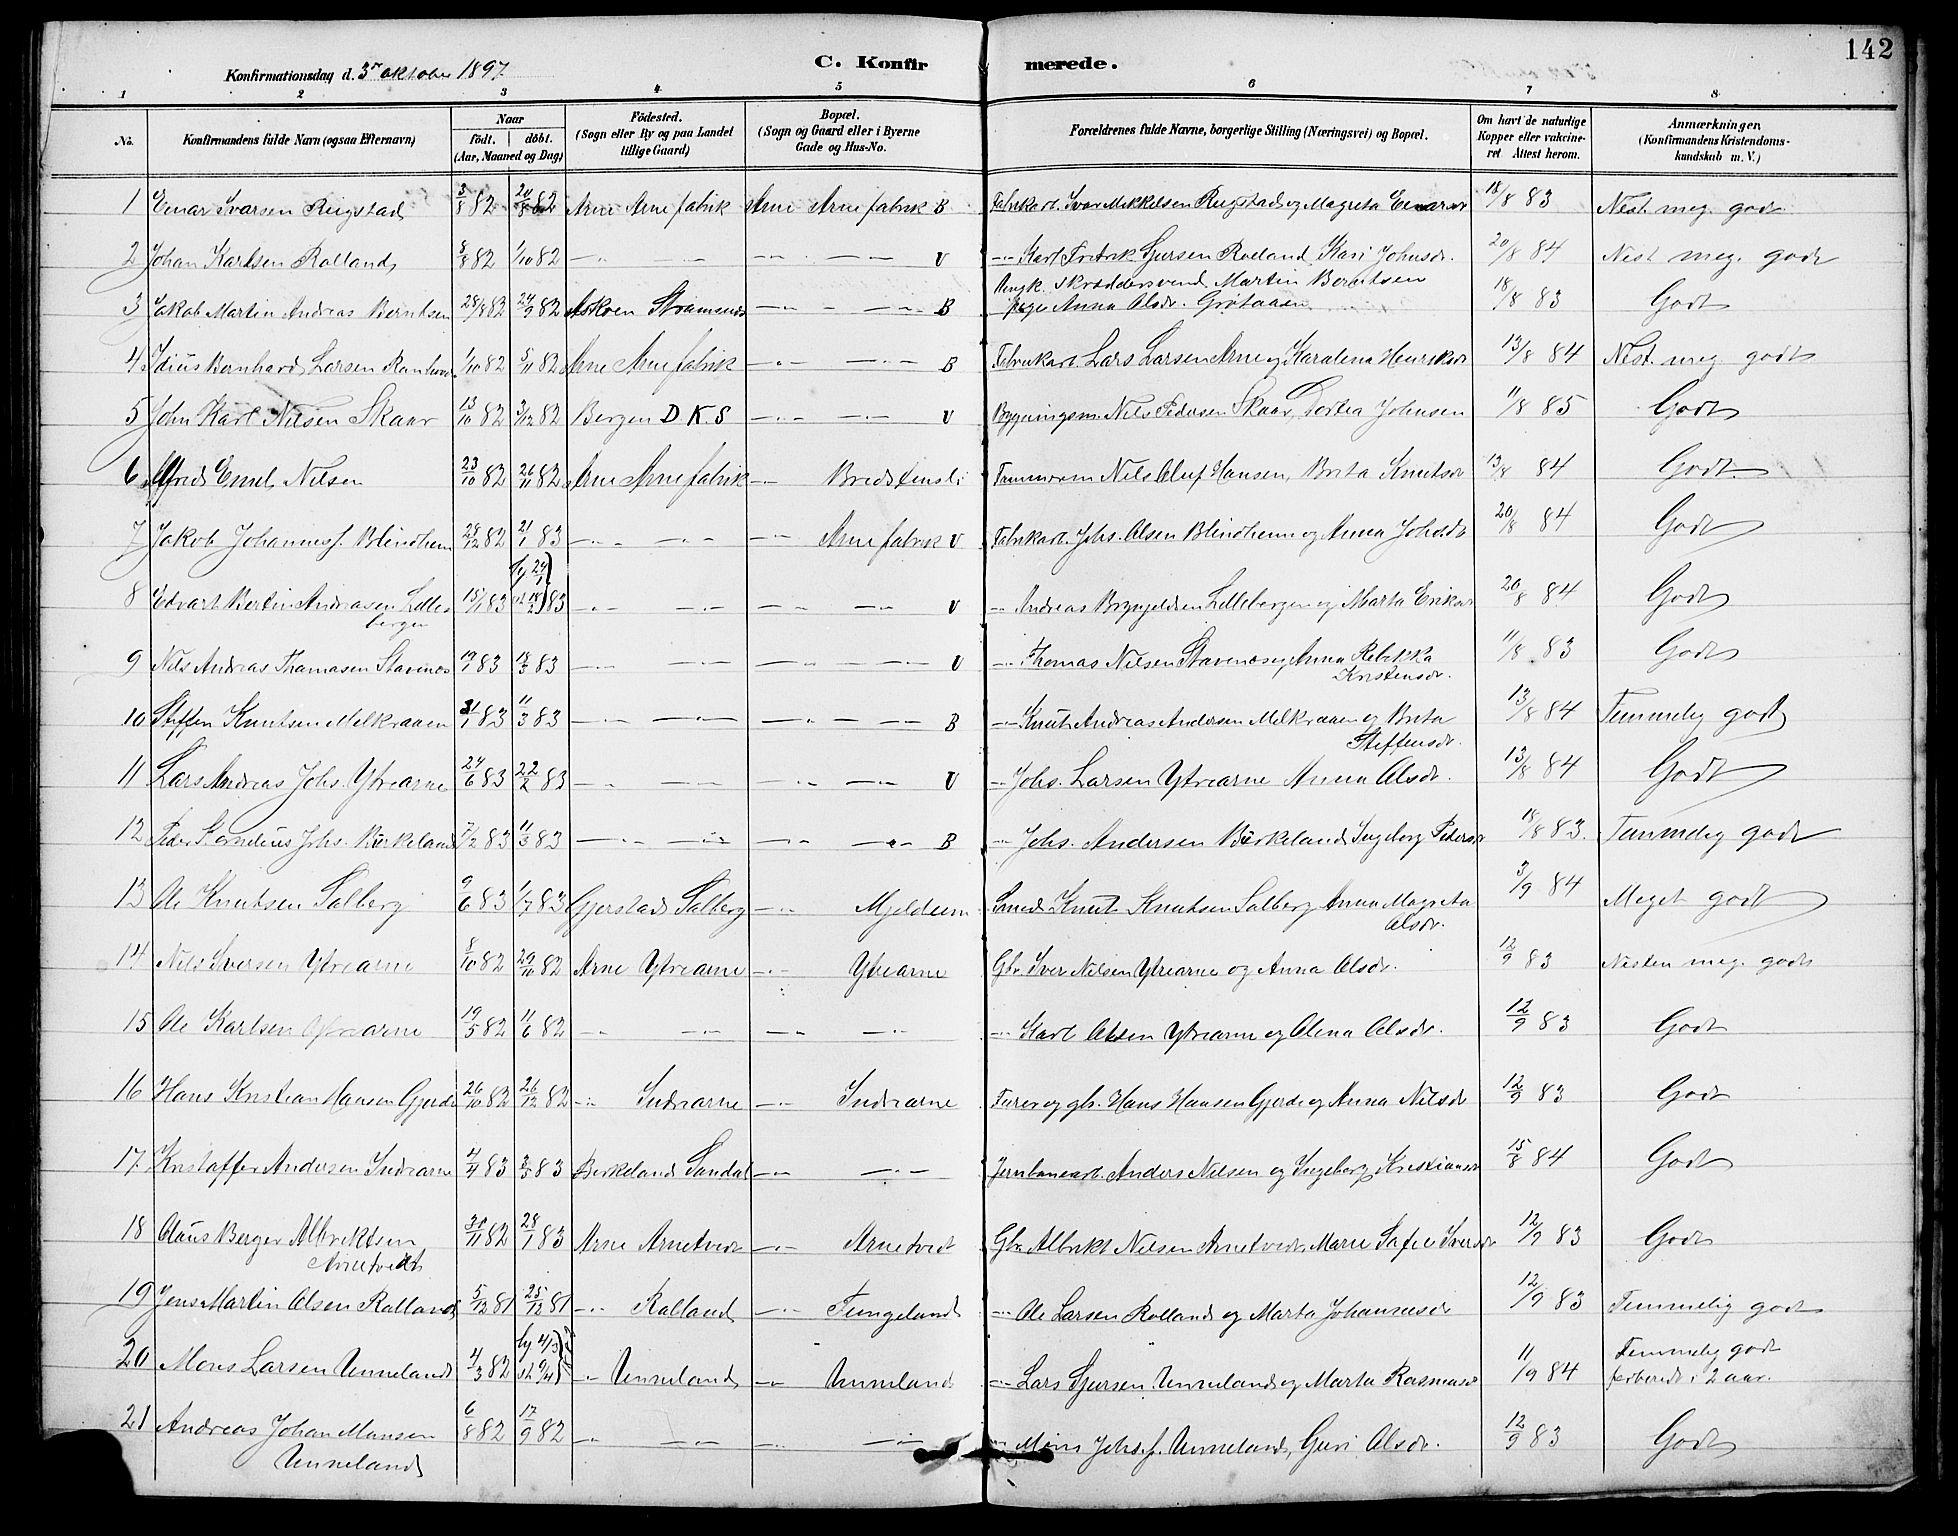 142
Konfirmationsdag d. 3die oktober 1897. C. Konfirmerede.
1 2 3 4 5 6 7 8
No. Konfirmandens fulde Navn (ogsaa Efternavn) Naar født. døbt. (Aar, Maaned og Dag) Fødested. (Sogn eller By og paa Landet tillige Gaard) Bopæl. (Sogn og Gaard eller i Byerne Gade og Hus-No. Forældrenes fulde Navne, borgerlige Stilling (Næringsvei) og Bopæl. Om havt de naturlige Kopper eller vakcineret Attest herom. Anmærkninger. (Konfirmandens Kristendomskundskab m. V.)
1 Einar Ivarsen Rugstad 3/8 82 20/8 82 Arne Arne fabrik Arne Arne fabrik B Fabrikarb. Ivar Mikkelsen Rugstad og Magreta Einarsdr 18/8 83 Nest. meg. godt
2 Johan Karlsen Rolland 8/8 82 1/10 82 — " — — " — — " — — " — V — " — Karl Fredrik Gjersen Rolland, Kari Johnsdr. 20/8 84 Nest meg. godt
3 Jakob Martin Andreas Berntsen 28/8 82 24/9 82 Askøen Stramsnes — " — — " — B skræddersvend Martin Berntsen
pige Anna Olsdr. Grøtaasen 18/8 83 Godt
4 Idius Bernhard Larsen 1/10 82 5/11 82 Arne Arne fabrik — " — — " — B Fabrikarb. Lars Larsen Arne og Karolena Henriksdr 13/8 84 Nest. meg. godt
5 John Karl Nilsen Skaar 13/10 82 3/12 82 Bergen D K. S — " — — " — V Bygningsm. Nils Pedersen Skaar, Dortea Johnsen 11/8 85 Godt
6 Alfred Emil Nilsen 23/10 82 26/11 82 Arne Arne fabrik — " — Bredstensli Tømmerm Nils Oluf Hansen, Brita Knutsdr 13/8 84 Godt
7 Jakob Johannesf. Blindheim 28/12 82 21/1 83 — " — — " — — " — Arne fabrik V Fabrikarb. Johs. Olsen Blindheim og Anna Johsdr 20/8 84 Godt
8 Edvart Bertin Andreasen Lille
bergen 15/1 83 hj 24/1 st 18/2 83 — " — — " — — " — — " — V — " — Andreas Brynjeldsen Lillebergen og Marta Eriksdr 20/8 84 Godt
9 Nils Andreas Thomasen Stavenes 19/1 83 18/3 83 — " — — " — — " — — " — V — " — Thomas Nilsen Stavenes og Anna Rebekka
Kristensdr. 11/8 83 Godt
10 Steffen Knutsen Melkraaen 31/1 83 11/3 83 — " — — " — — " — — " — B — " — Knut Andreas Andersen Melkraaen og Brita
Steffensdr. 13/8 84 Temmelig godt
11 Lars Andreas Johs. Ytrearne 24/6 83 22/2 83 — " — — " — — " — — " — V — " — Johs. Larsen Ytrearne Anna Olsdr. 13/8 84 Godt
12 Peder Kornelius Johs. Birkeland 7/2 83 11/3 83 — " — — " — — " — — " — B — " — Johs. Andersen Birkeland Ingeborg Pedersdr 18/8 83. Temmelig godt
13 Ole Knutsen Solberg 9/6 83 1/7 83 Gjerstad Solberg — " — Mjeldeim Smed Knut Knutsen Solberg Anna Magreta
Olsdr. 3/9 84 Meget godt
14 Nils Iversen Ytrearne 8/10 82 29/10 82 Arne Ytrearne — " — Ytrearne Gbr. Iver Nilsen Ytrearne og Anna Olsdr. 12/9 83 Nesten meg. godt
15 Ole Karlsen Ytrearne 19/5 82 11/6 82 — " — — " — — " — — " — — " — Karl Olsen Ytrearne og Olena Olsdr. 12/9 83 Godt
16 Hans Kristian Hansen Gjerde 26/10 82 26/12 82 — " — Indrearne — " — Indrearne og gbr. Hans Hansen Gjerde og Anna Nilsdr 12/9 83 Godt
17. Kristoffer Andersen Indrearne 4/4 83 3/5 83 Birkeland Sandal — " — — " — Jernbanearb. Anders Nilsen og Ingeborg Kristiansdr 15/8 84 Godt
18 Olaus Berger Albriktsen
Arnetvedt 30/11 82 28/1 83 Arne Arnetvedt — " — Arnetvedt Gbr Albrikt Nilsen Arnetvedt, Marie Sofie Iversdr 12/9 83 Godt
19 Jens Martin Olsen Rolland 5/12 81 25/12 81 — " — Rolland — " — Tungeland — " — Ole Larsen Rolland og Marta Johannesdr 12/9 83 Temmelig godt
20 Mons Larsen Unneland 4/3 82 hj 4/3 st 9/4 — " — Unneland — " — Unneland — " — Lars Gjersen Unneland og Marta Rasmusdr 11/9 84 Temmelig godt
forberedt i 2 aar.
21 Andreas Johan Monsen
Unneland 6/8 82 17/9 82 — " — — " — — " — — " — — " — Mons Johs.f. Unneland, Guri Olsdr. 12/9 83 Godt